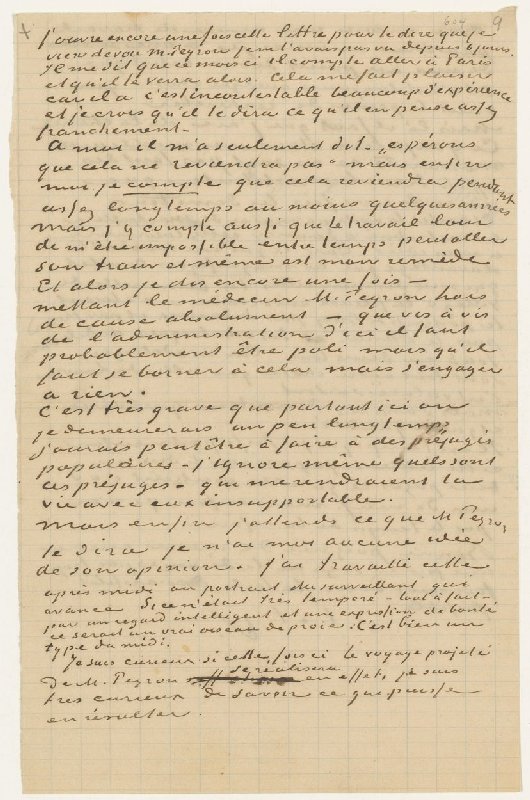 604 9
J'ouvre encore une fois cette lettre pour te dire que je
viens de voir M. Peyron je ne l'avais pas vu depuis 6 jours.
Il me dit que ce mois ci il compte aller à Paris
et qu'il te verra alors. Cela me fait plaisir
car il a c'est incontestable beaucoup d'expérience
et je crois qu'il te dira ce qu'il en pense assez
franchement –
A moi il m'a seulement dit – "espérons
que cela ne reviendra pas" mais enfin
moi je compte que cela reviendra pendant
assez longtemps au moins quelques années
Mais j'y compte aussi que le travail loin
de m'être impossible entretemps peut aller
son train et même est mon remède
Et alors je dis encore une fois –
mettant le médecin M. Peyron hors
de cause absolument – que vis à vis
de l'administration d'ici il faut
probablement être poli mais qu'il
faut se borner à cela mais s'engager
a rien.
C'est très grave que partout ici où
je demeurerais un peu longtemps
j'aurais peutêtre à faire à des préjugés
populaires – j'ignore même quels sont
ces préjugés – qui me rendraient la
vie avec eux insupportable.
Mais enfin j'attends ce que M Peyron
te dira je n'ai moi aucune idée
de son opinion. J'ai travaillé cette
après midi au portrait du surveillant qui
avance Si ce n'était très tempéré – tout à fait –
par un regard intelligent et une expression de bonté
ce serait un vrai oiseau de proie. C'est bien un
type du midi.
Je suis curieux si cette fois ci le voyage projeté
De M. Peyron se réalisera en effet, je suis
très curieux de savoir ce que puisse
en résulter.